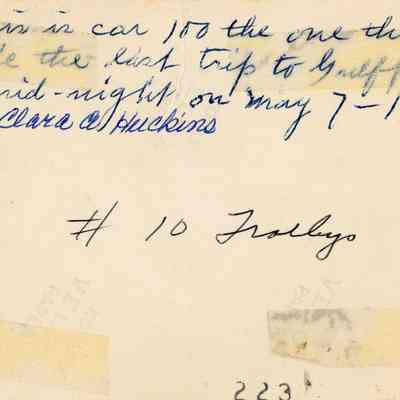 is is car 100 the one th
e the last trip to Gulf
mid-night on May 7-1
Clara A Huckins
# 10 Trolleys
223